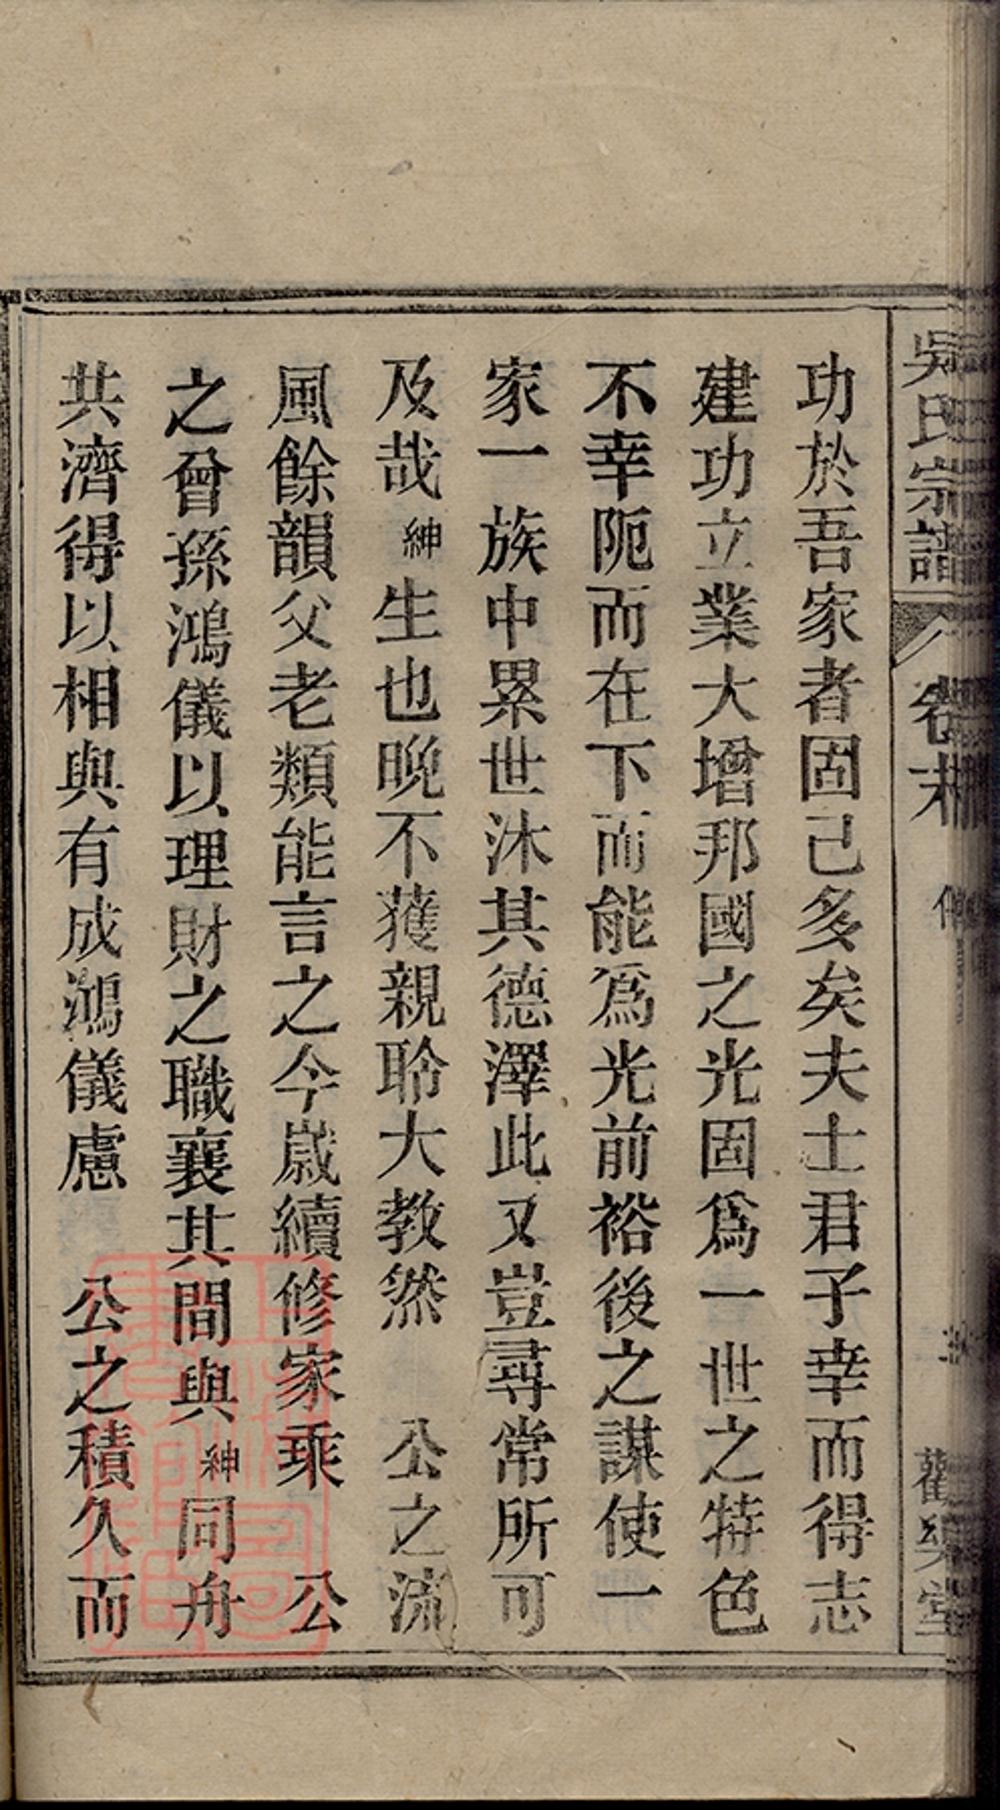 吳氏宗譜
卷末
功於吾家者固己多矣夫士君子幸而得志
建功立業大增邦國之光固爲一世之特色
不幸阨而在下而能爲光前裕後之謀使一
家一族中累世沐其德澤此又豈尋常所可
及哉紳生也晚不獲親聆大教然　公之流
風餘韻父老類能言之今歲續修家乘　公
之曾孫鴻儀以理財之職襄其間與紳同舟
共濟得以相與有成鴻儀慮　公之積久而